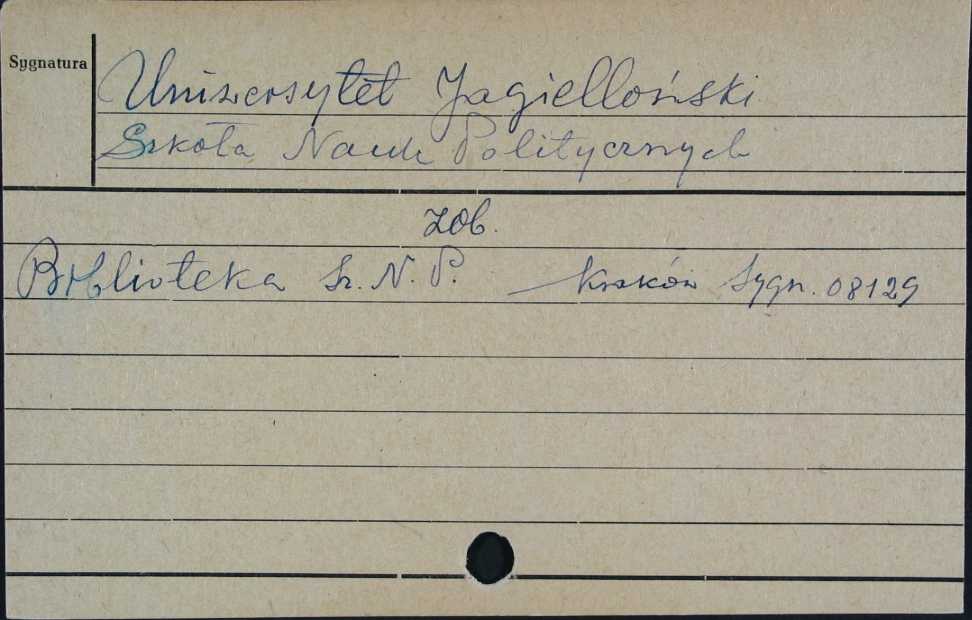 Sygnatura
Uniwersytet Jagielloński
Szkoła Nauk Politycznych
zob.
Biblioteka Sz. N. P. — Kraków Sygn. 08129